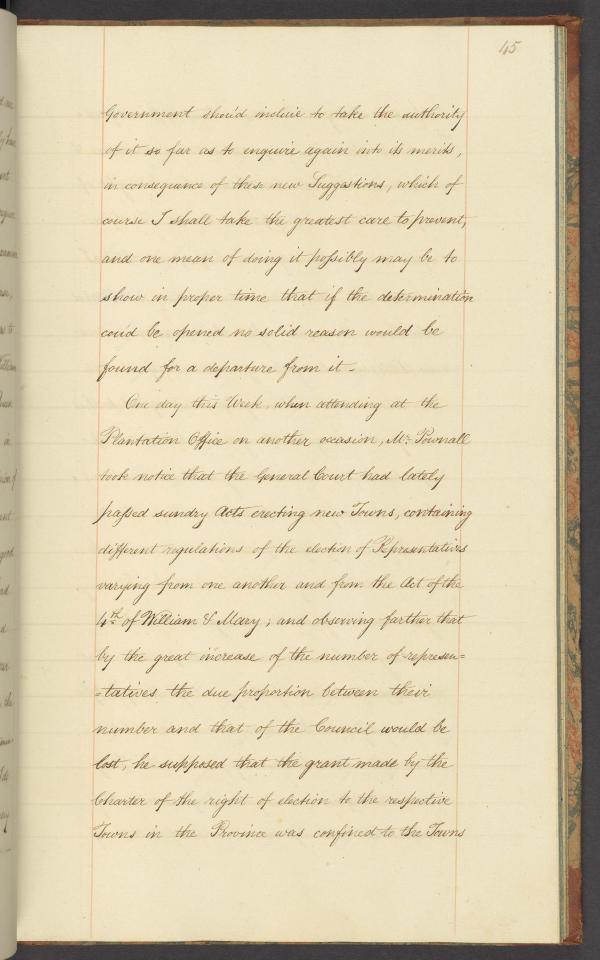 45
Government should incline to take the authority
of it so far as to enquire again into its merits,
in consequence of these new Suggestions, which of
course I shall take the greatest care to prevent,
and one mean of doing it possibly may be to
show in proper time that if the determination
could be opened no solid reason would be
found for a departure from it.
One day this Week, when attending at the
Plantation Office on another occasion, Mr. Pownall
took notice that the General Court had lately
passed sundry Acts erecting new Towns, containing
different regulations of the election of Representatives
varying from one another and from the Act of the
4th of William & Mary; and observing farther that
by the great increase of the number of represen=
=tatives the due proportion between their
number and that of the Council would be
lost, he supposed that the grant made by the
Charter of the right of election to the respective
Towns in the Province was confined to the Towns